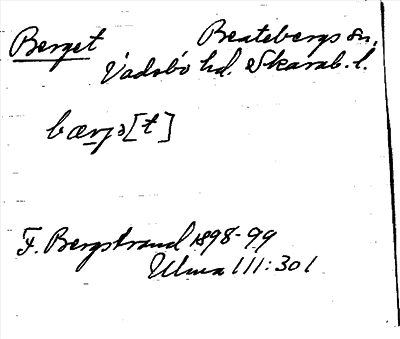 Berget Beatebergs sn.
Vadsbo hd. Skarab. l.
bærjə[t]
F. Bergstrand 1898-99
Ulma 111:301